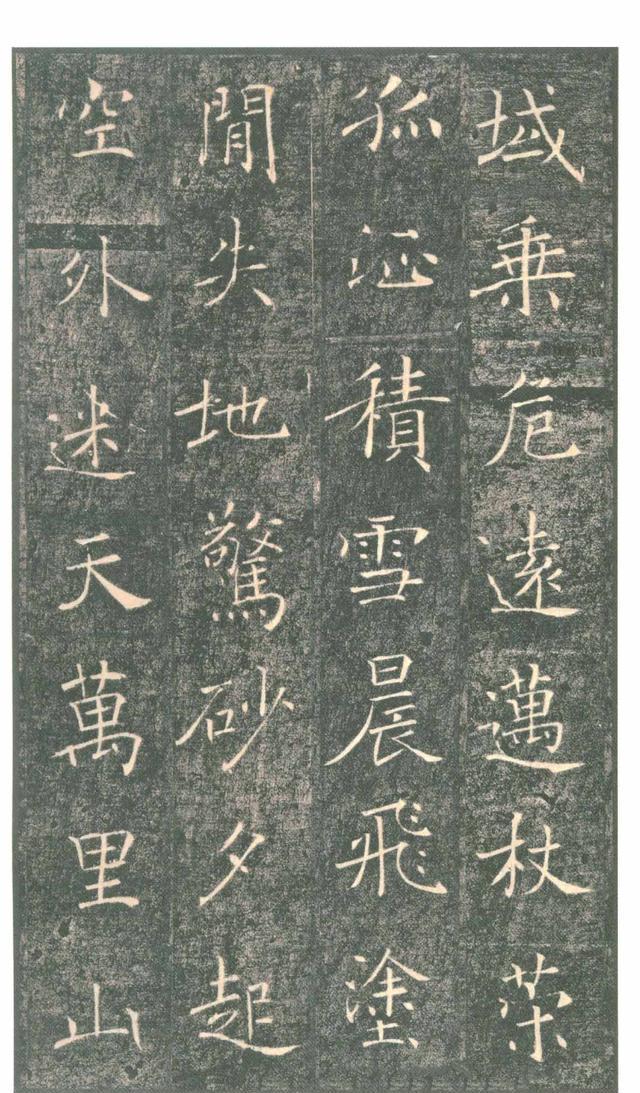 域乗危遠邁杖榮
孤征積雪晨飛塗
閒失地驚砂夕起
空外迷天萬里山